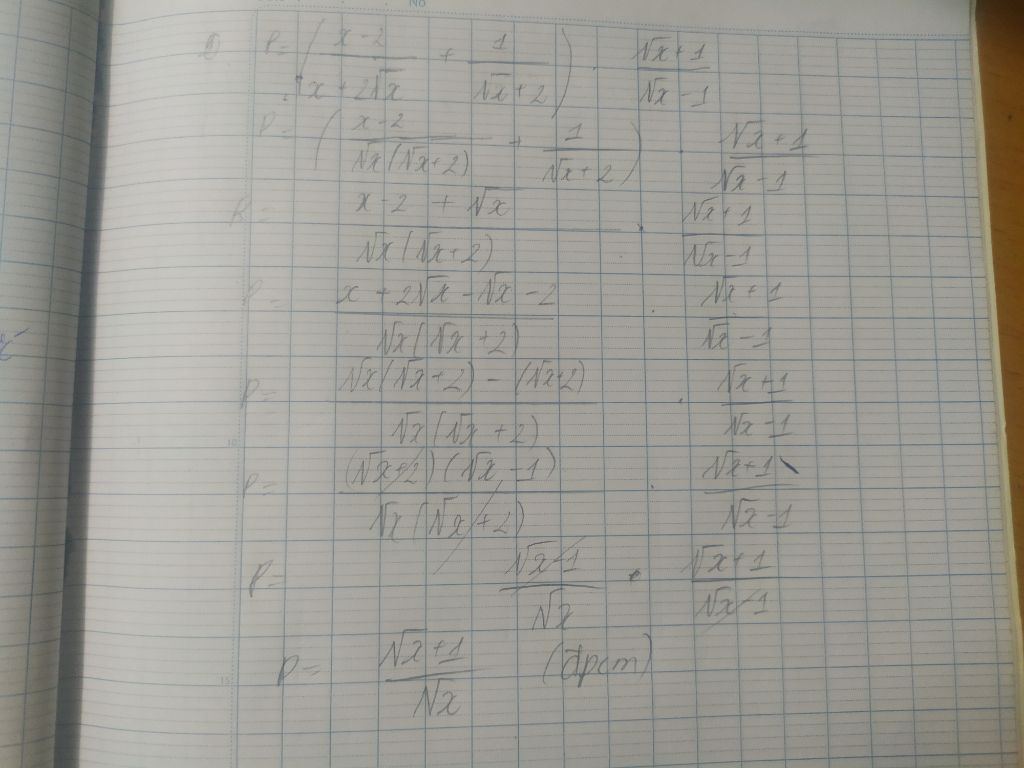 No
a) P = ( (x-2)/(x+2√x) + 1/(√x+2) ) . (√x+1)/(√x-1)
P = ( (x-2)/(√x(√x+2)) + 1/(√x+2) ) . (√x+1)/(√x-1)
P = (x-2+√x)/(√x(√x+2)) . (√x+1)/(√x-1)
P = (x+2√x-√x-2)/(√x(√x+2)) . (√x+1)/(√x-1)
P = (√x(√x+2)-(√x+2))/(√x(√x+2)) . (√x+1)/(√x-1)
10
P = ((√x+2)(√x-1))/(√x(√x+2)) . (√x+1)/(√x-1)
P = (√x-1)/√x . (√x+1)/(√x-1)
P = (√x+1)/√x (đpcm)
15